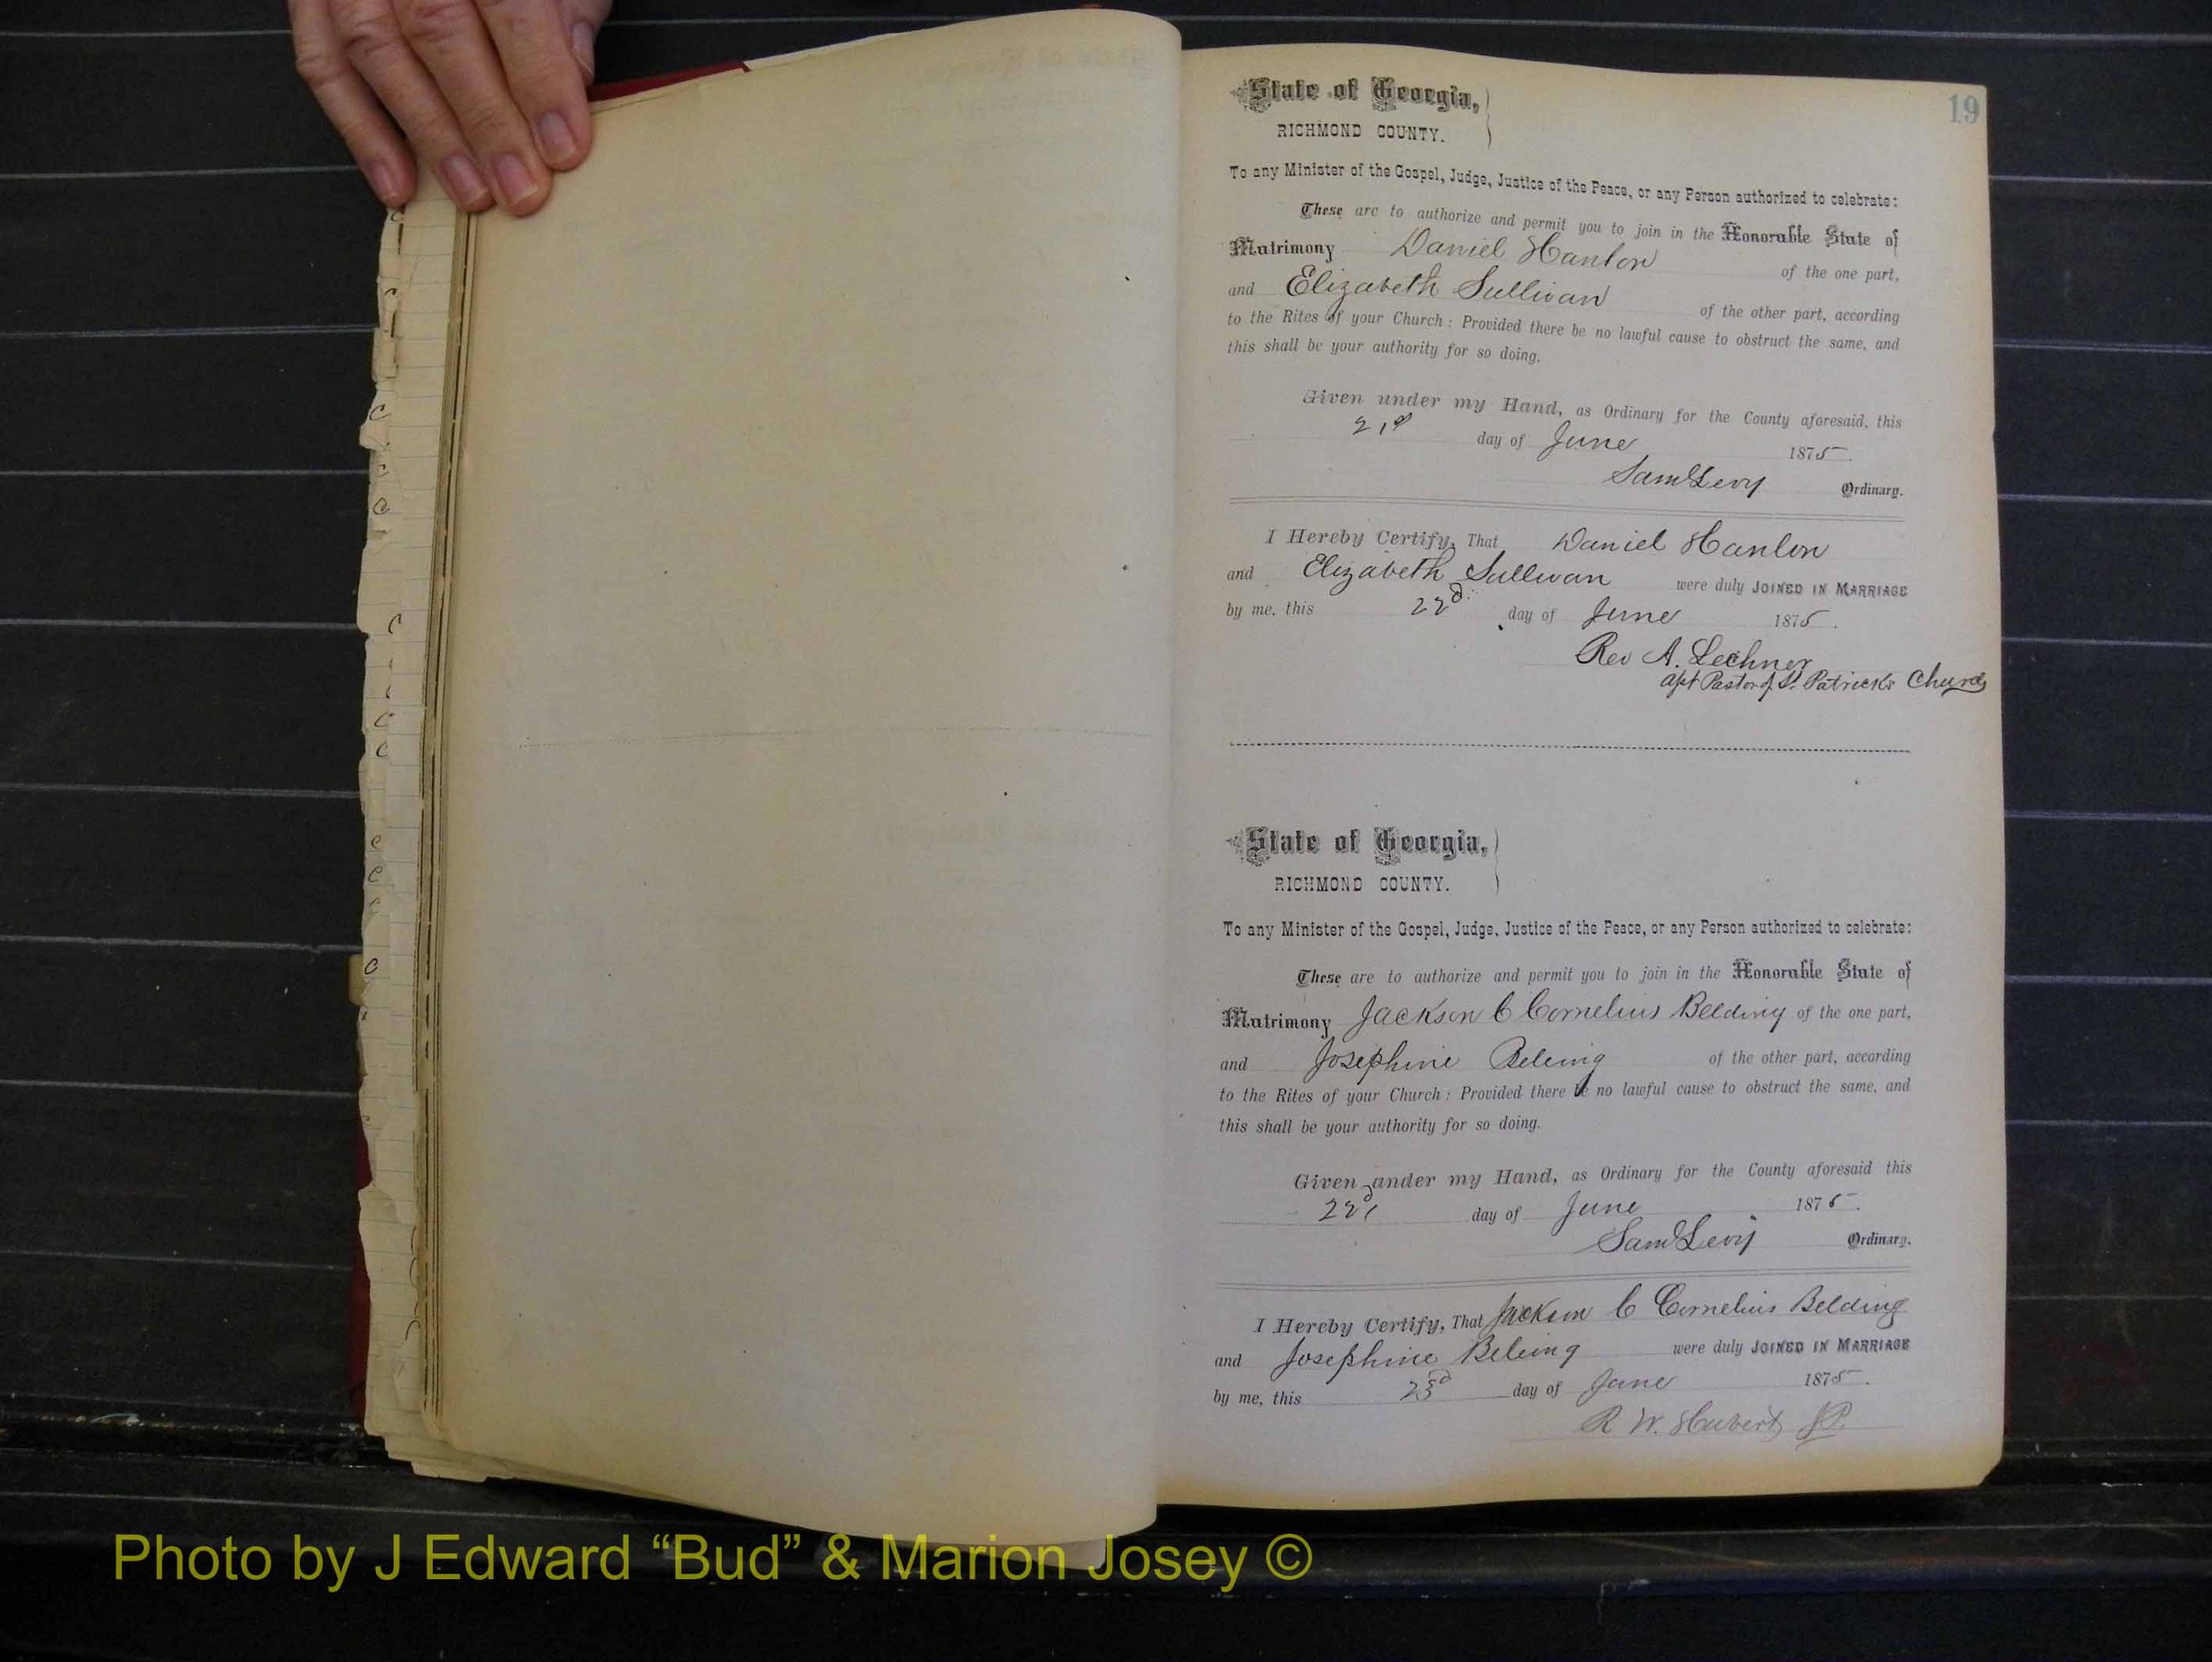 19
State of Georgia,
RICHMOND COUNTY.
To any Minister of the Gospel, Judge, Justice of the Peace, or any Person authorized to celebrate:
These are to authorize and permit you to join in the Honorable State of
Matrimony Daniel Hanlon of the one part,
and Elizabeth Sullivan of the other part, according
to the Rites of your Church: Provided there be no lawful cause to obstruct the same, and
this shall be your authority for so doing.
Given under my Hand, as Ordinary for the County aforesaid, this
21st day of June 1875.
Saml Levy Ordinary.
I Hereby Certify, That Daniel Hanlon
and Elizabeth Sullivan were duly JOINED IN MARRIAGE
by me, this 22d day of June 1875.
Rev A. Lechner
Pastor of St. Patricks Church
State of Georgia,
RICHMOND COUNTY.
To any Minister of the Gospel, Judge, Justice of the Peace, or any Person authorized to celebrate:
These are to authorize and permit you to join in the Honorable State of
Matrimony Jackson C Cornelius Belding of the one part,
and Josephine Beleing of the other part, according
to the Rites of your Church: Provided there be no lawful cause to obstruct the same, and
this shall be your authority for so doing.
Given under my Hand, as Ordinary for the County aforesaid this
22d day of June 1875.
Saml Levy Ordinary.
I Hereby Certify, That Jackson C Cornelius Belding
and Josephine Beleing were duly JOINED IN MARRIAGE
by me, this 23d day of June 1875.
R W. Hubert JP.
Photo by J Edward “Bud” & Marion Josey ©